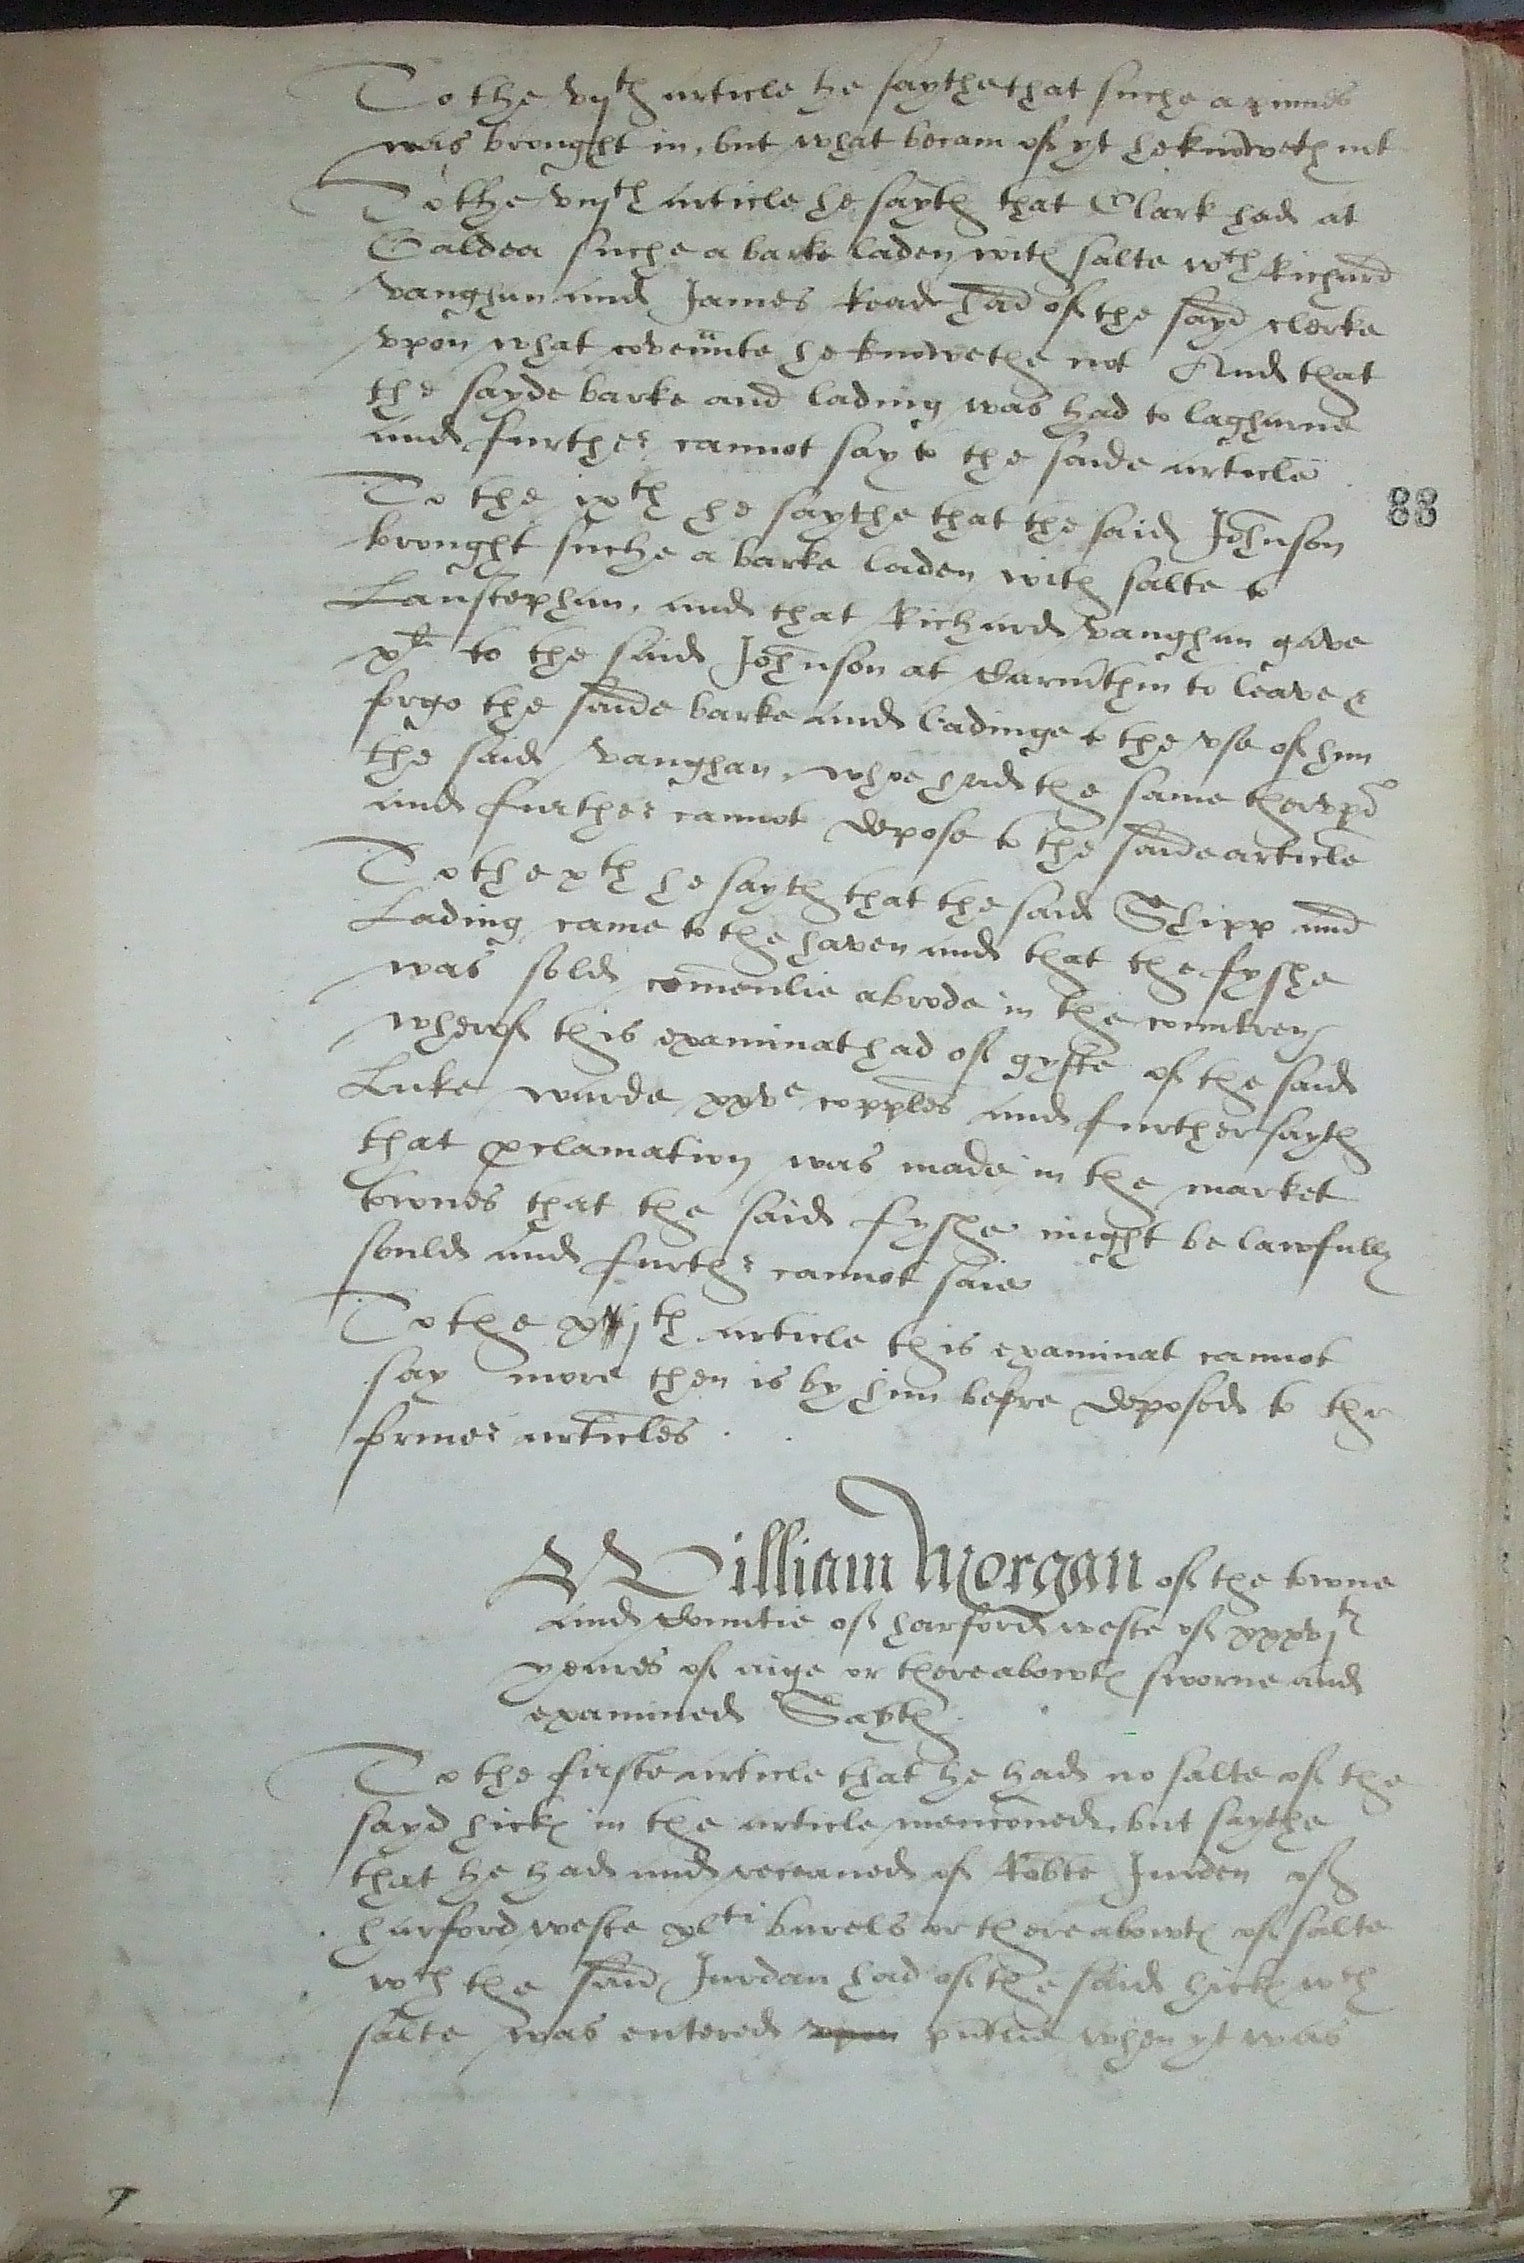 To the vijth article he saythe that suche a
was brought in, but what becam of yt he knoweth not
To the viijth article he sayth that Clark had at
Caldea suche a barke laden with salte wch Richard
Vaughan and James Read had of the sayd clerke
vpon what covennte he knowethe not And that
the sayde barke and lading was had to lagharne
and further cannot say to the saide article
88
To the ixth he saythe that the said Johnson
brought suche a barke laden with salte to
Lanstephan, and that Richard Vaughan gave
xli to the said Johnson at Carmthin to leave &
forgo the saide barke and ladinge to the vse of him
the said Vaughan, whoe had the same thervpō
and further cannot depose to the saide article
To the xth he sayth that the said Shipp and
Lading came to the haven and that the fyshe
was sold comenlie abrode in the countrey
wherof this examinat had of gyfte of the said
Luke warde xxve copples and further sayth
that pclamation was made in the market
townes that the said fyshe might be lawfully
sould and further cannot saie
To the xjth article this examinat cannot
say more then is by him before deposed to the
former articles
William Morgan of the towne
and Countie of harford weste of xxxvjth
yeares of aige or thereabowts sworne and
examined Sayth
To the firste article that he had no salte of the
sayd hicks in the article mencioned, but saythe
that he had and receaved of Robte Jurden of
harford weste xlti barels or thereabowts of salte
wch the said Jurdan had of the said hicks wch
salte was entered vpon when yt was